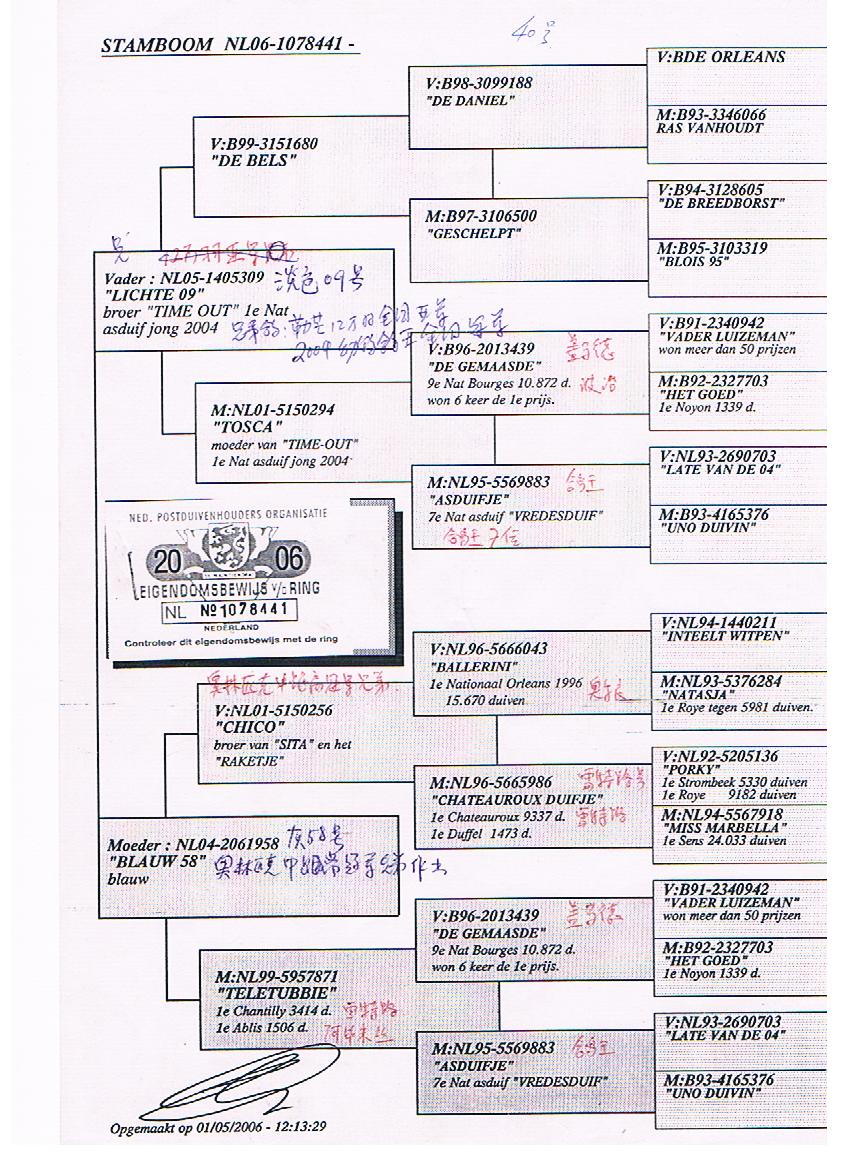 40号
STAMBOOM NL06-1078441 -
Vader : NL05-1405309 淡色09号
"LICHTE 09"
broer "TIME OUT" 1e Nat
asduif jong 2004
V:B99-3151680
"DE BELS"
V:B98-3099188
"DE DANIEL"
V:BDE ORLEANS
M:B93-3346066
RAS VANHOUDT
M:B97-3106500
"GESCHELPT"
V:B94-3128605
"DE BREEDBORST"
M:B95-3103319
"BLOIS 95"
M:NL01-5150294
"TOSCA"
moeder van "TIME-OUT"
1e Nat asduif jong 2004
V:B96-2013439 盖马德
"DE GEMAASDE"
9e Nat Bourges 10.872 d. 波治
won 6 keer de 1e prijs.
V:B91-2340942
"VADER LUIZEMAN"
won meer dan 50 prijzen
M:B92-2327703
"HET GOED"
1e Noyon 1339 d.
M:NL95-5569883 鸽王
"ASDUIFJE"
7e Nat asduif "VREDESDUIF"
鸽王7位
V:NL93-2690703
"LATE VAN DE 04"
M:B93-4165376
"UNO DUIVIN"
NED. POSTDUIVENHOUDERS ORGANISATIE
20 06
EIGENDOMSBEWIJS v/d RING
NL Nº 1078441
NEDERLAND
Controleer dit eigendomsbewijs met de ring
Moeder : NL04-2061958 灰58号
"BLAUW 58"
blauw
V:NL01-5150256
"CHICO"
broer van "SITA" en het
"RAKETJE"
V:NL96-5666043
"BALLERINI"
1e Nationaal Orleans 1996
15.670 duiven
V:NL94-1440211
"INTEELT WITPEN"
M:NL93-5376284
"NATASJA"
1e Roye tegen 5981 duiven.
M:NL96-5665986 雷特路号
"CHATEAUROUX DUIFJE"
1e Chateauroux 9337 d. 雷特路
1e Duffel 1473 d.
V:NL92-5205136
"PORKY"
1e Strombeek 5330 duiven
1e Roye 9182 duiven
M:NL94-5567918
"MISS MARBELLA"
1e Sens 24.033 duiven
M:NL99-5957871
"TELETUBBIE"
1e Chantilly 3414 d.
1e Ablis 1506 d.
V:B96-2013439 盖马德
"DE GEMAASDE"
9e Nat Bourges 10.872 d.
won 6 keer de 1e prijs.
V:B91-2340942
"VADER LUIZEMAN"
won meer dan 50 prijzen
M:B92-2327703
"HET GOED"
1e Noyon 1339 d.
M:NL95-5569883 鸽王
"ASDUIFJE"
7e Nat asduif "VREDESDUIF"
V:NL93-2690703
"LATE VAN DE 04"
M:B93-4165376
"UNO DUIVIN"
Opgemaakt op 01/05/2006 - 12:13:29